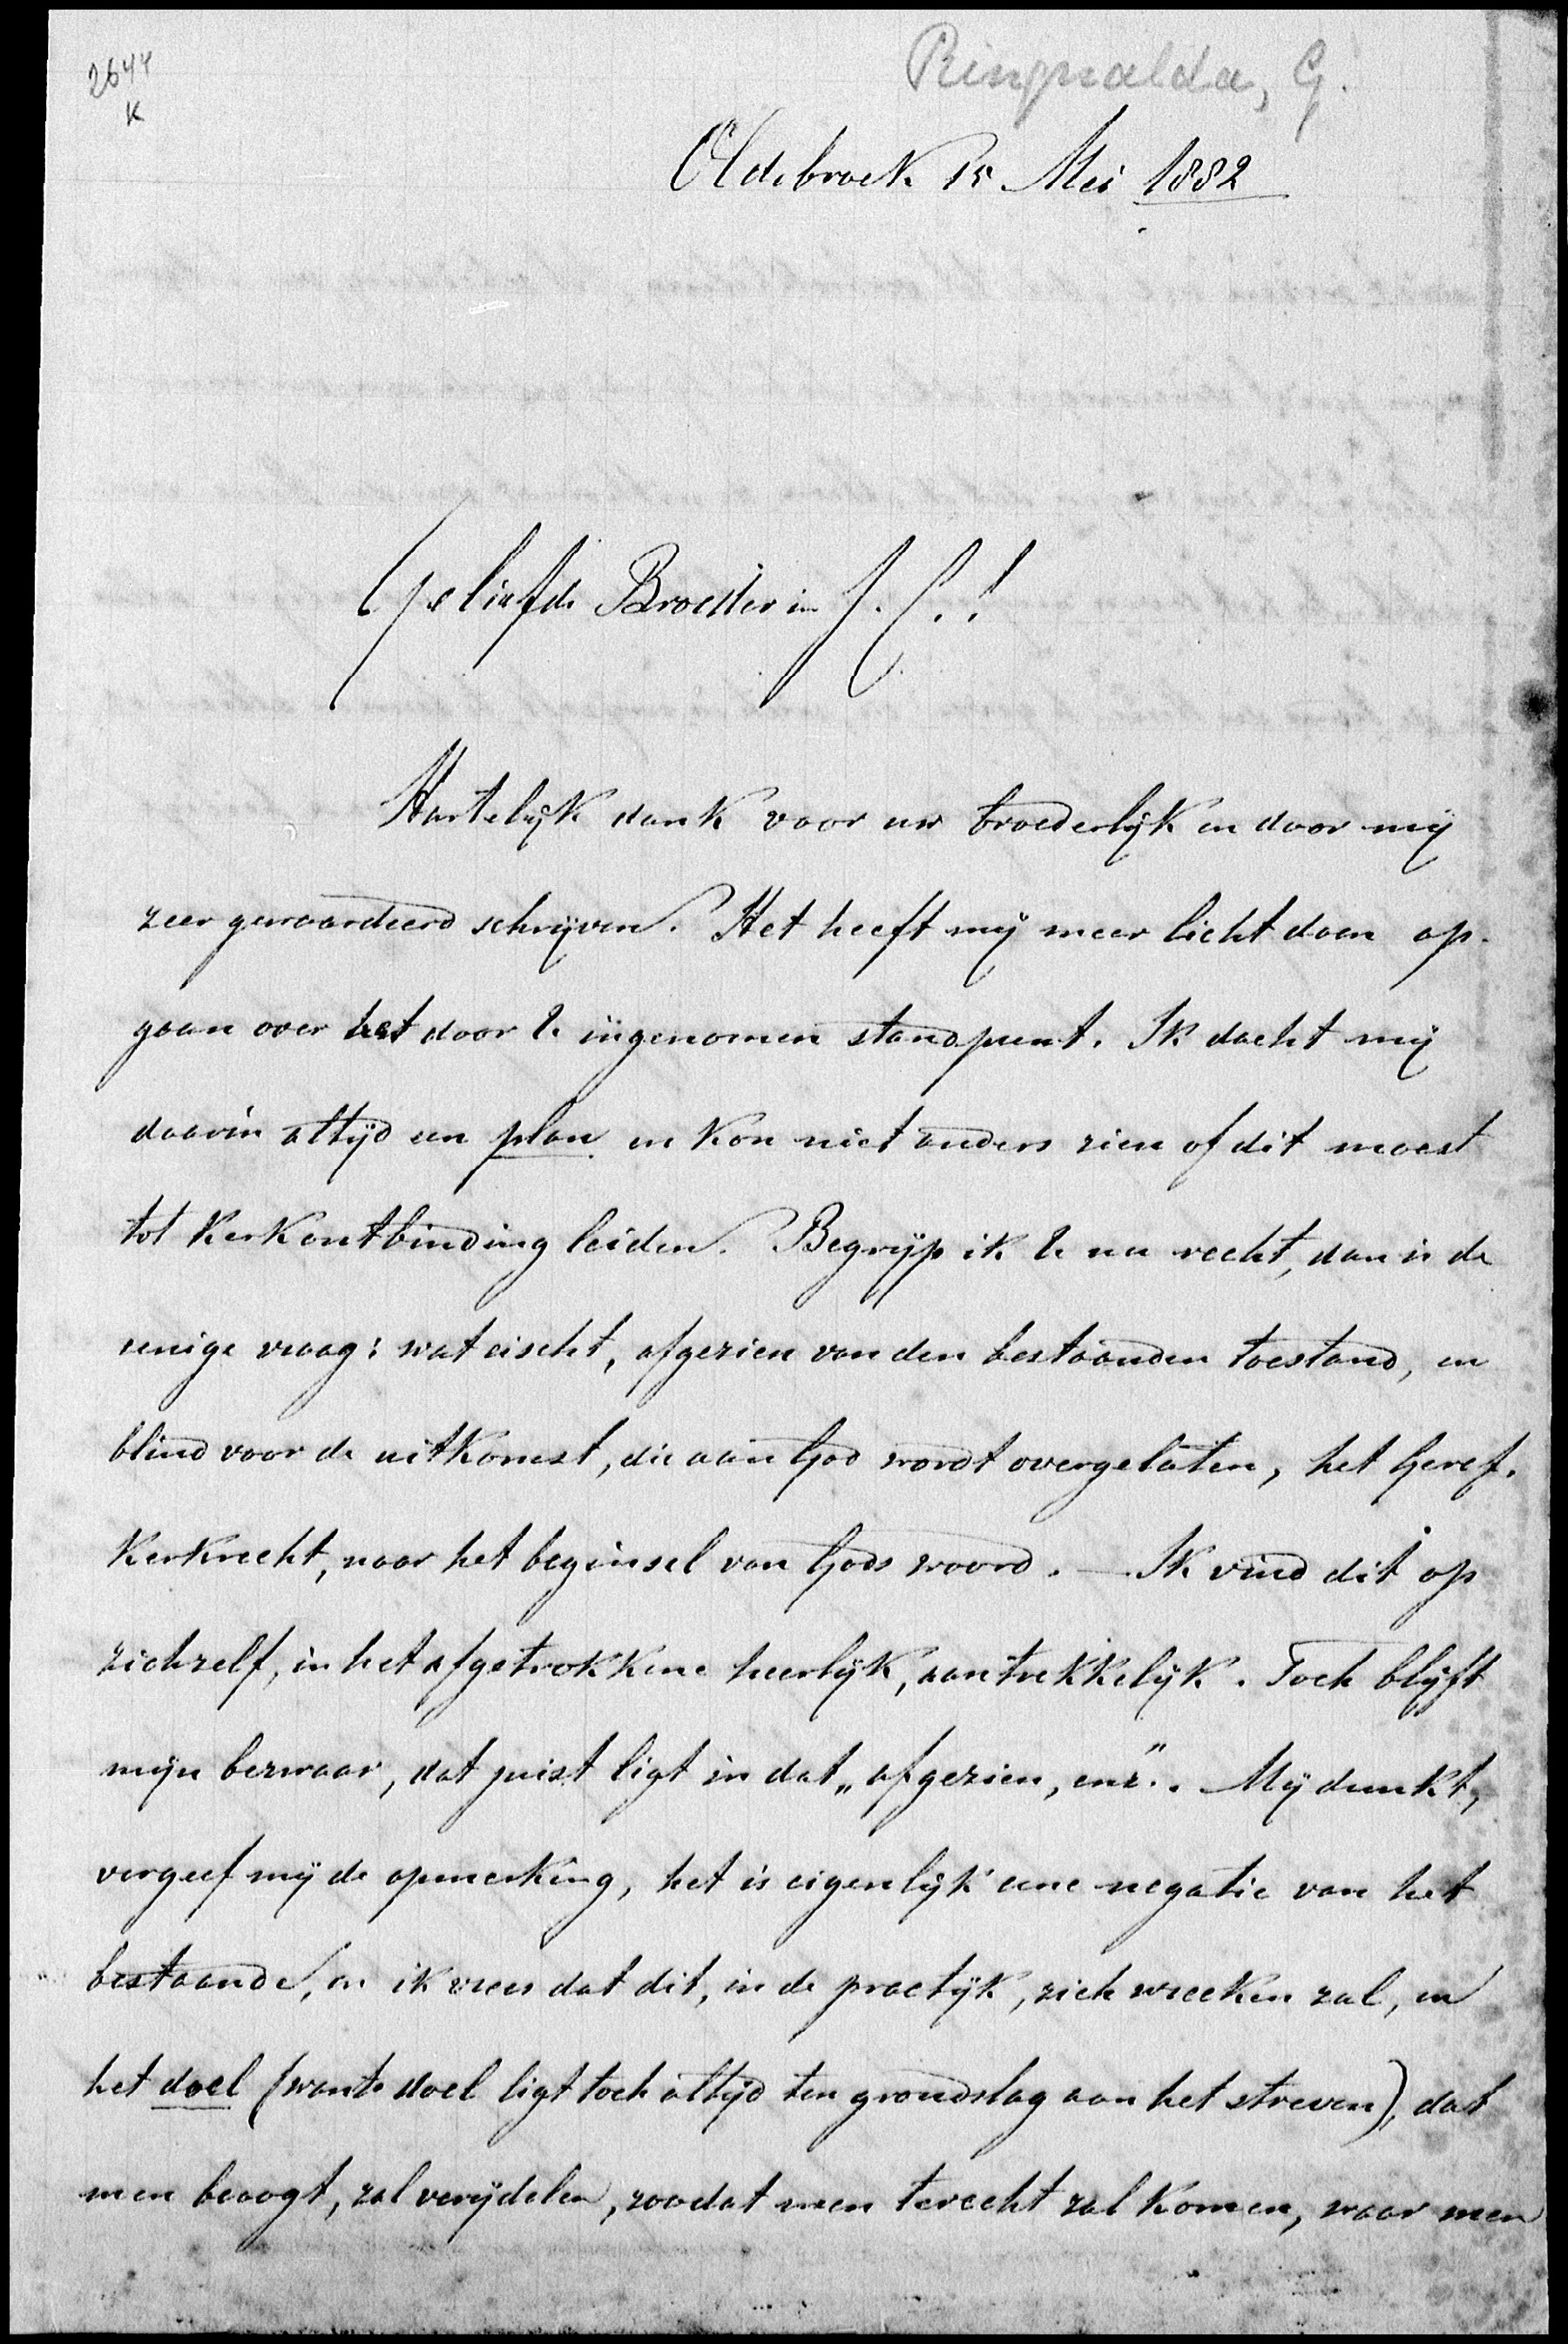 2644
K
Ringnalda, G.
Oldebroek 15 Mei 1882
Geliefde Broeder in J. C.!
Hartelijk dank voor uw broederlijk en door mij
zeer gewaardeerd schrijven. Het heeft mij meer licht doen op-
gaan over het door U ingenomen standpunt. Ik dacht mij
daarin altijd een plan en kon niet anders zien of dit moest
tot Kerkontbinding leiden. Begrijp ik U nu recht, dan is de
eenige vraag: wat eischt, afgezien van den bestaanden toestand, en
blind voor de uitkomst, die aan God wordt overgelaten, het Geref.
Kerkrecht, naar het beginsel van Gods woord. — Ik vind dit op
zichzelf, in het afgetrokkene heerlijk, aantrekkelijk. Toch blijft
mijn bezwaar, dat juist ligt in dat „afgezien, enz.". Mij dunkt,
vergeef mij de opmerking, het is eigenlijk eene negatie van het
bestaande, en ik vrees dat dit, in de practijk, zich wreeken zal, en
het doel (want doel ligt toch altijd ten grondslag aan het streven), dat
men beoogt, zal verijdelen, zoodat men terecht zal komen, waar men